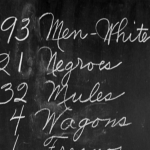 93 Men-White
21 Negroes
32 Mules
4 Wagons